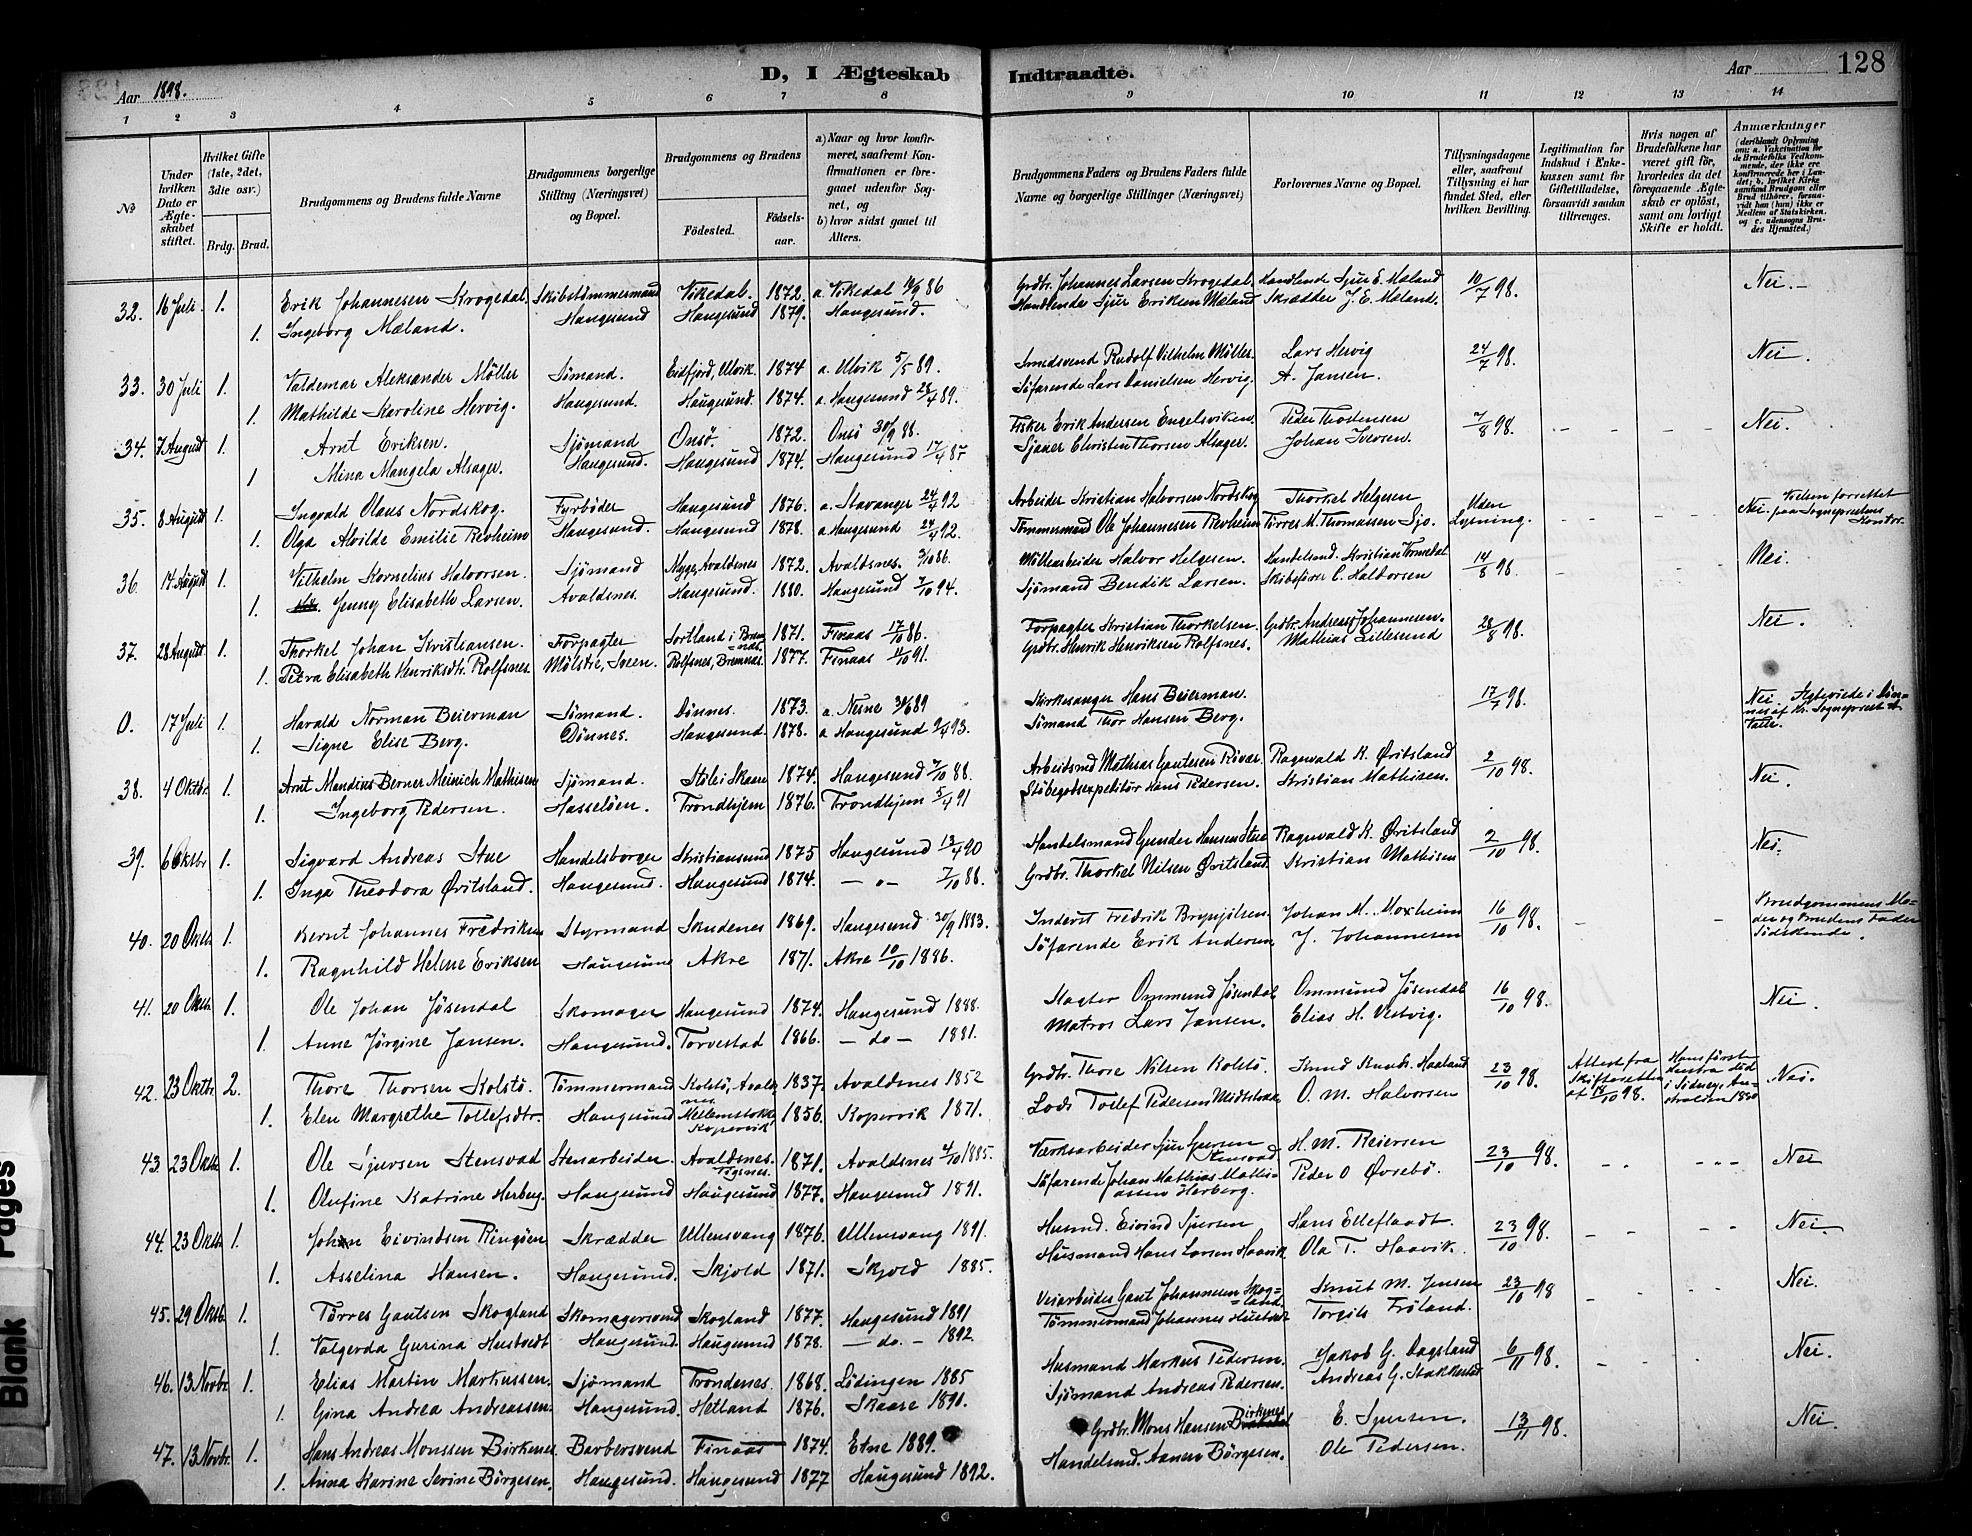 Aar 1898.
D, I Ægteskab Indtraadte.
Aar 128
1 2 3 4 5 6 7 8 9 10 11 12 13 14
No
Under hvilken Dato er Ægteskabet stiftet.
Hvilket Gifte (1ste, 2det, 3die osv.)
Brdg. Brud.
Brudgommens og Brudens fulde Navne
Brudgommens borgerlige Stilling (Næringsvei) og Bopæl.
Brudgommens og Brudens
Födested. Födselsaar.
a) Naar og hvor konfirmeret, saafremt Konfirmationen er foregaaet udenfor Sognet, og b) hvor sidst gaaet til Alters.
Brudgommens Faders og Brudens Faders fulde Navne og borgerlige Stillinger (Næringsvei)
Forlovernes Navne og Bopæl.
Tillysningsdagene eller, saafremt Tillysning ei har fundet Sted, efter hvilken Bevilling.
Legitimation for Indskud i Enkekassen samt for Giftetilladelse, forsaavidt saadan tiltrænges.
Hvis nogen af Brudefolkene har været gift för, hvorledes da det foregaaende Ægteskab er oplöst, samt om lovligt Skifte er holdt.
Anmærkninger
32. 16 Juli 1. Erik Johannesen Krogedal. Skibstömmermand Vikedal. 1872. a. Vikedal 86 Grdbr. Johannes Larsen Krogedal. Handlende Sjur E. Mæland 10/7 98. Nei.
1. Ingeborg Mæland. Haugesund Haugesund 1879. Haugesund. Handlende Sjur Eriksen Mæland Skrædder J. E. Mæland.
33. 30 Juli 1. Valdemar Aleksander Möller Sömand. Eidfjord, Ulvik. 1874 a. Ulvik 5/5 89. Smedsvend Rudolf Vilhelm Möller. Lars Hervig 24/7 98. Nei.
1. Mathilde Karoline Hervig. Haugesund. Haugesund. 1874. a. Haugesund 28/4 89. Söfarende Lars Danielsen Hervig. A. Jansen.
34. 7 August 1. Arnt Eriksen. Sjömand Onsö. 1872. Onsö 30/9 88. Fisker Erik Andersen Engelsviken. Peder Thodensen 7/8 98. Nei.
1 Mina Mangela Alsager. Haugesund. Haugesund 1874. Haugesund 17/4 87 Christen Thorsen Alsager. Johan Iversen.
35. 8 August 1. Ingvald Olaus Nordskog. Fyrböder Haugesund 1876. a. Stavanger 24/4 92 Arbeider Kristian Halvorsen Nordskog Thorkel Helgesen Uden Nei. Vielsen forrettet
1. Olga Alvilde Emilie Revheim Haugesund. Haugesund 1878. a. Haugesund 24/4 92. Tömmermand Ole Johannesen Revheim Törres M. Thomassen Sjo. Lysning. paa Sogneprestens Kontor.
36. 14 August 1. Vilhelm Kornelius Halvorsen. Sjömand Nyge, Avaldsnes 1872. Avaldsnes. 3/10 86. Möllearbeider Halvor Helgesen. Handelsmd. Kristian Vormedal 14/8 98. Nei.
1. Jenny Elisabeth Larsen. Avaldsnes. Haugesund. 1880. Haugesund 7/10 94. Sjömand Bendik Larsen. Skibsförer C. Haldorsen
37. 28 August 1. Thorkel Johan Kristiansen. Forpagter Sortland i Bremnes. 1871. Finaas 17/10 86. Forpagter Kristian Thorkelsen. Grdbr. Andreas Johannesen. 28/8 98. Nei.
1. Petra Elisabeth Henriksdtr. Rolfsnes. Mölstre, Sveen. Rolfsnes, Bremnes. 1877. Finaas 11/10 91. Grdbr. Henrik Henriksen Rolfsnes. Mathias Lillesund
0. 17 Juli 1. Harald Norman Beierman Sömand. Dönnes. 1873. a. Nesne 89 Kirkesanger Hans Beierman. 17/7 98. Nei. Ægteviede i Dönnes af Kr. Sogneprest
1. Signe Elise Berg. Dönnes. Haugesund. 1878. a Haugesund 9/4 93. Sömand Thor Hansen Berg.
38. 4 Oktbr. 1. Arnt Mandius Berner Meinich Mathisen Sjömand. Stöle i Skaare 1874. Haugesund 7/10 88. Arbeidsmd Mathias Gautesen Rövær Ragnvald K. Öritsland 2/10 98. Nei.
1. Ingeborg Pedersen. Hasselöen. Trondhjem 1876. Trondhjem 5/4 91 Hans Pedersen. Kristian Mathisen.
39. 6 Oktbr 1. Sigvard Andreas Stue Handelsborger Kristiansund 1875 Haugesund 13/4 90 Handelsmand Gunder Hansen Stue Ragnvald K. Öritsland 2/10 98. Nei.
1. Inga Theodora Öritsland. Haugesund. Haugesund 1874. — „ — 7/10 88. Grdbr. Thorkel Nilsen Öritsland. Kristian Mathisen
40. 20 Oktbr 1. Bernt Johannes Fredriksen Styrmand Skudenes 1869. Haugesund 30/9 1883. Inderst Fredrik Brynjolsen. Johan M. Moxheim 16/10 98. Brudgommens Moder og Brudens Fader Södskende.
1. Ragnhild Helene Eriksen Haugesund Akre 1871. Akre 10/10 1886. Söfarende Erik Andersen J. Johannesen
41. 20 Oktbr. 1. Ole Johan Jösendal Skomager Haugesund 1874. Haugesund 1888. Slagter Ommund Jösendal Ommund Jösendal 16/10 98. Nei
1. Anne Jörgine Jansen. Haugesund. Torvestad 1866. — do — 1881. Matros Lars Jansen. Elias H. Vestvig.
42. 23 Oktbr. 2. Thore Thorsen Kolstö. Tömmermand Kolstö, Avaldsnes 1837. Avaldsnes 1852 Grdbr. Thore Nilsen Kolstö. Knud Knuds. Haaland 23/10 98. Attest fra Skifteretten af 18/10 98. Hans förste Hustru död i Sidney, Australien 1890 Nei.
1. Elen Margrethe Tollefsdtr. Haugesund Mellemstokke Kopervik 1856. Kopervik 1871. Lods Tollef Pedersen Midtstokke O. M. Halvorsen
43. 23 Oktbr. 1. Ole Sjursen Stensvad Stenarbeider. Avaldsnes. 1871. Avaldsnes 4/10 1885. Værksarbeider Sjur Sjursen Stensvad H. M. Reiersen 23/10 98. Nei
1. Olufine Katrine Herberg. Haugesund Haugesund 1877. Haugesund 1891. Söfarende Johan Mathias Mathiassen Herberg. Peder O Övrebö.
44. 23 Oktbr 1. Johan Eivindsen Ringöen Skrædder Ullensvang 1876. Ullensvang 1891. Husmd. Eivind Sjursen Hans Elleflaadt. 23/10 98. Nei.
1. Asselina Hansen. Haugesund. Skjold 1871. Skjold 1885. Husmand Hans Larsen Haavik. Ola T. Haavik.
45. 29 Oktb. 1. Törres Gautsen Skogland Skomagersvend Skogland 1877. Haugesund 1891 Veiarbeider Gaut Johannesen Skogland. Knut M. Jensen 23/10 98 Nei.
1. Valgerda Gurina Hustvedt Haugesund Haugesund 1878. — do. — 1892. Tömmermand Johannes Hustvedt Torgils Fröland.
46. 13 Novbr. 1. Elias Martin Markussen. Sjömand Trondenes. 1868. Lödingen 1885 Husmand Markus Pedersen. Jakob G. Dagsland 6/11 98. Nei.
1. Gina Andrea Andreassen. Haugesund. Hetland 1876. Skaare 1890. Sjömand Andreas Pedersen. Andreas G. Stakkestad
47. 13 Novbr. 1. Hans Andreas Monssen Birkenes. Barbersvend Finaas 1874. Etne 1889. Grdbr. Mons Hansen Birkenes E. Sjursen. 13/11 98. Nei.
1. Anna Karine Serine Börgesen. Haugesund. Haugesund 1877 Haugesund 1892. Handelsmd. Aanen Börgesen. Ole Pedersen.
Blank Pages